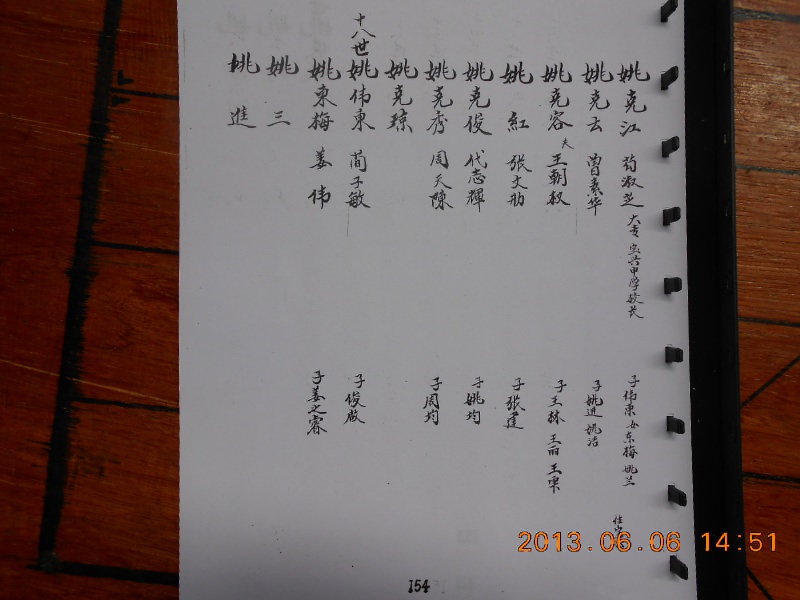 姚克江 荀淑芝 大专 宝兴中学校长 子伟东 女东梅 姚兰
姚克云 曾素华 子姚进 姚洁
姚克容 夫王朝叔 子王林 王丽 王
姚红 张文 子张建
姚克俊 代志輝 子姚均
姚克秀 周天陳 子周均
姚克琼
十八世
姚伟東 蔺子敏 子俊
姚東梅 姜伟 子姜之睿
姚三
姚進
154
2013.06.06 14:51